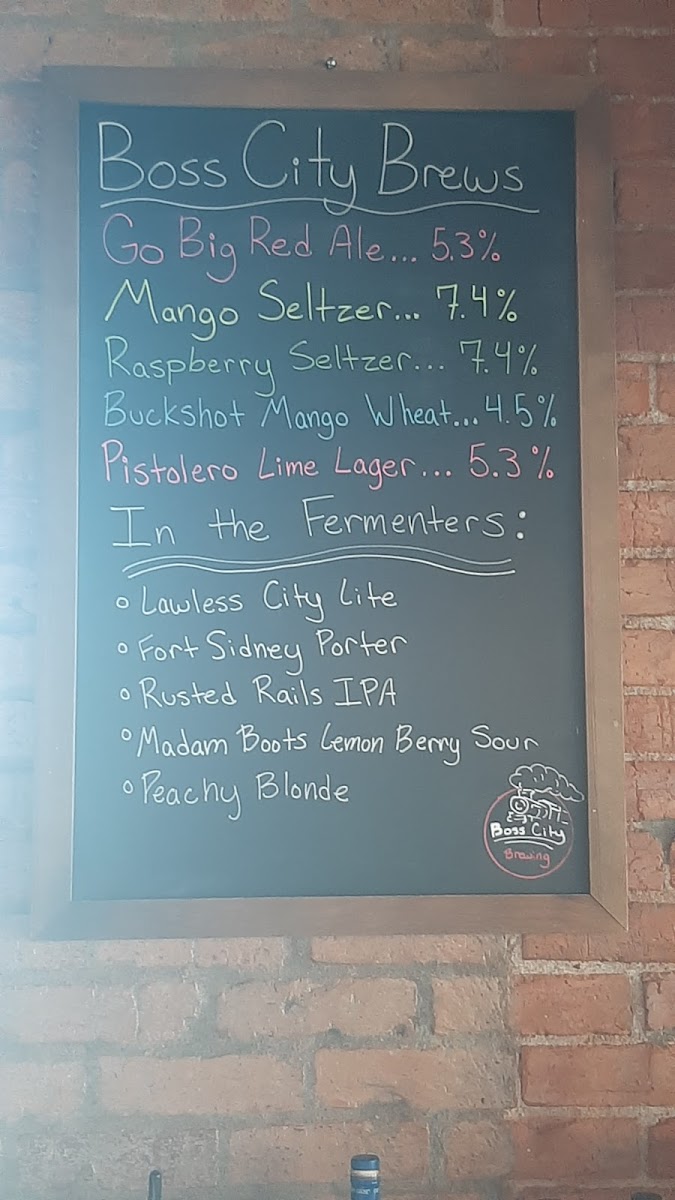 Boss City Brews
Go Big Red Ale... 5.3%
Mango Seltzer... 7.4%
Raspberry Seltzer... 7.4%
Buckshot Mango Wheat... 4.5%
Pistolero Lime Lager... 5.3%
In the Fermenters:
Lawless City Lite
Fort Sidney Porter
Rusted Rails IPA
Madam Boots Lemon Berry Sour
Peachy Blonde
Boss City
Brewing